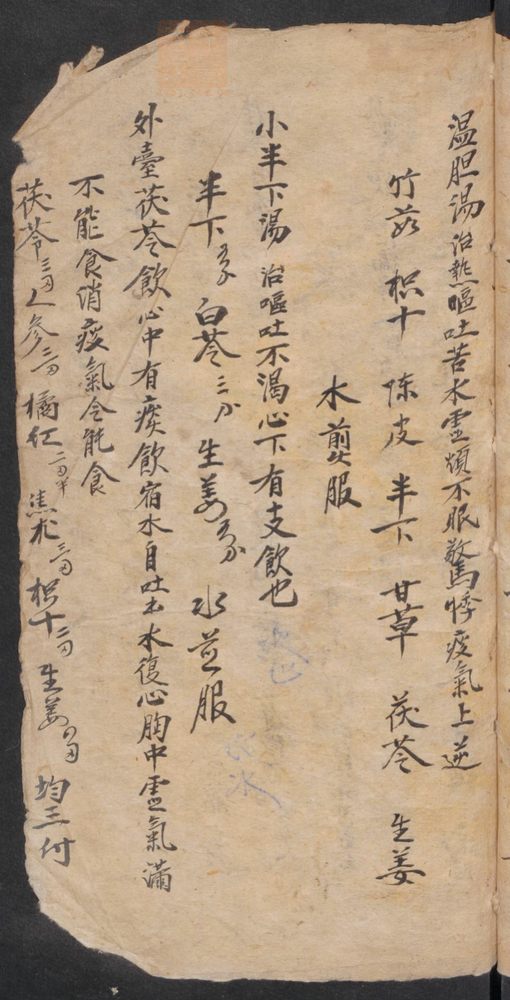 温胆湯 治熱嘔吐苦水虚煩不眠驚悸痰氣上逆
竹茹 枳十 陈皮 半下 甘草 茯苓 生姜
水煎服
小半下湯 治嘔吐不渴心下有支飲也
半下 白苓 三 生姜 水煎服
外臺茯苓飲心中有痰飲宿水自吐出水復心胸中虚氣滿
不能食消痰氣令能食
茯苓 三 人参 橘红 二 焦朮 三 枳十 二 生姜 均三付